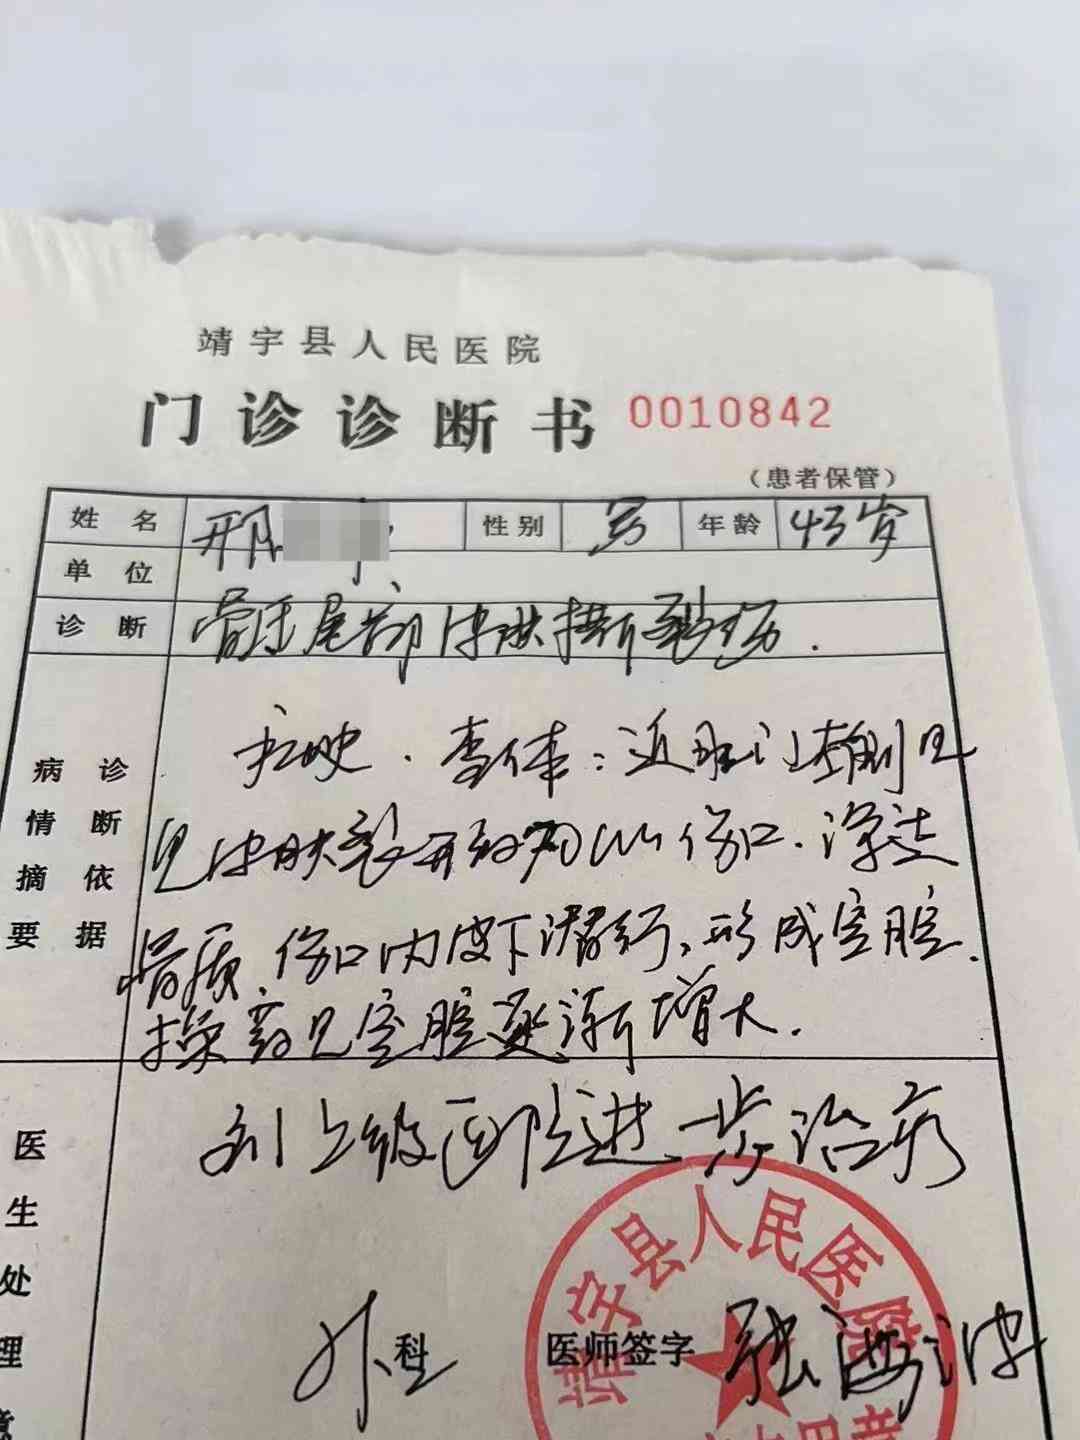 靖宇县人民医院
门诊诊断书 0010842
（患者保管）
姓名 邢 性别 男 年龄 43岁
单位
诊断 骶尾部皮肤挫裂伤.
病情摘要 诊断依据
查体：近肛门左侧
见皮肤裂开 伤口.深达
骨质.伤口内皮下潜行,形成空腔.
换药见空腔逐渐增大.
医生处理意
到上级医院进一步治疗
外科 医师签字 张海波
靖宇县人民医院